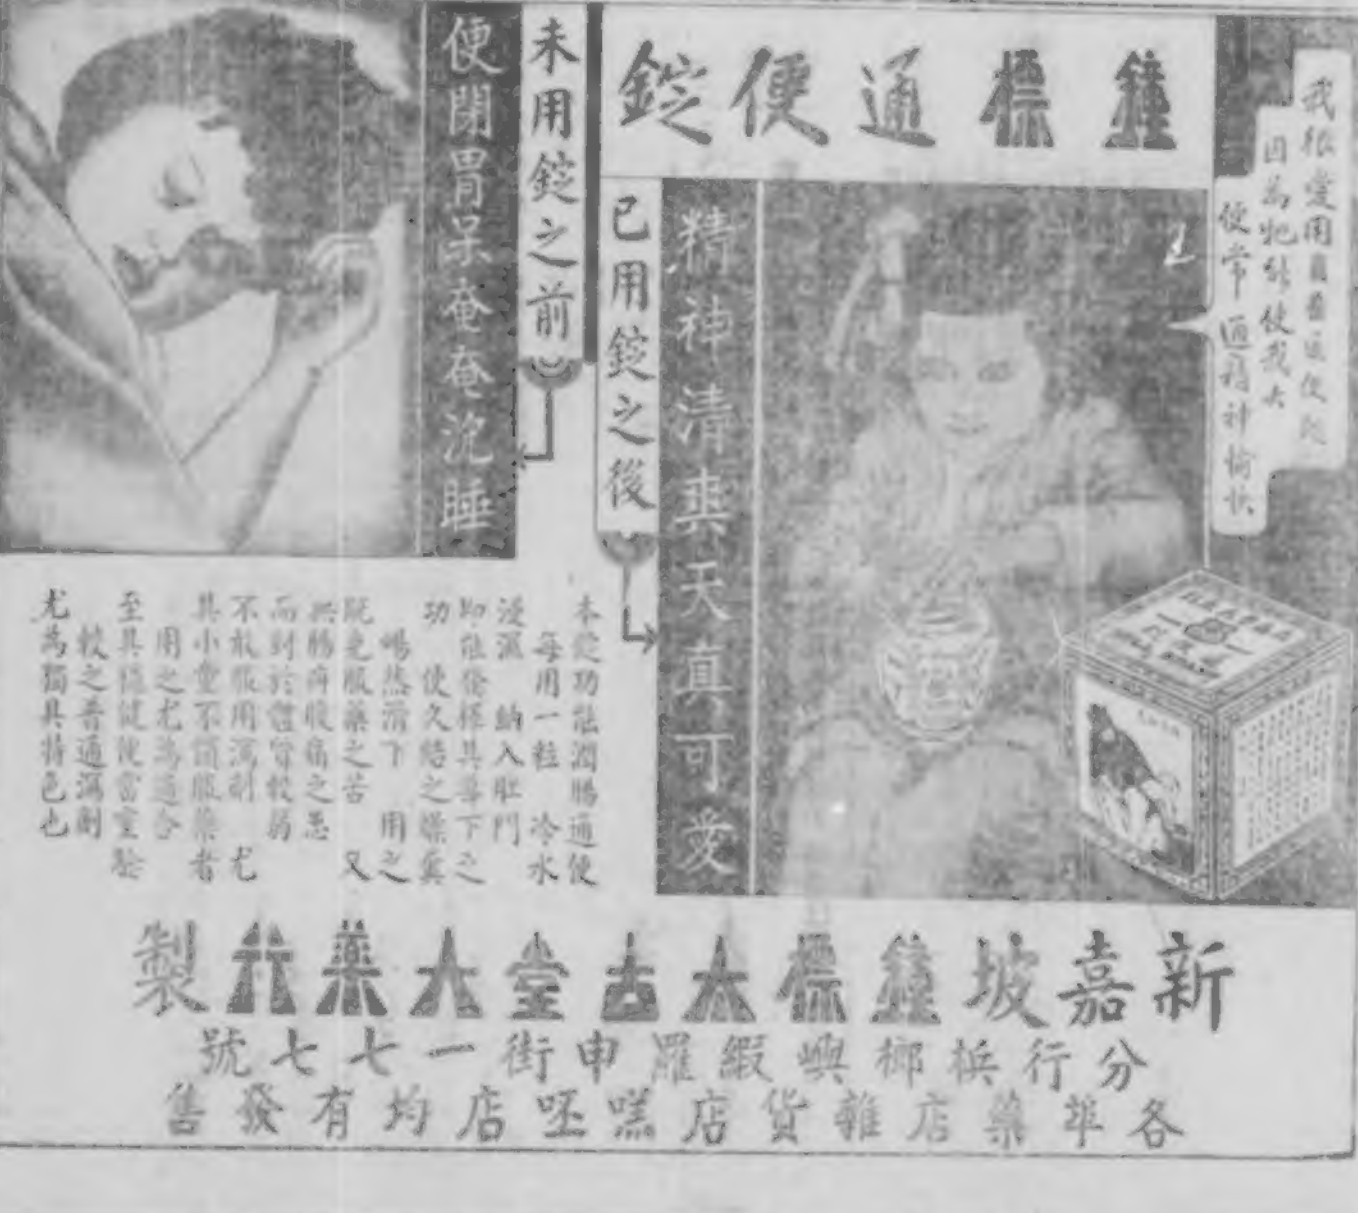 鐘標通便錠
我很愛用 通便
因為牠能使我大
便常通精神愉快
已用錠之後
精神清爽天真可愛
未用錠之前
便閉胃呆奄奄沈睡
本錠功能潤腸通便
每用一粒 冷水
浸濕 納入肚門
即能發揮其導下之
功 使久結之燥糞
暢然滑下 用之
既免服藥之苦 又
無腸疼腹痛之患
而對於體質較弱
不敢服用瀉劑 尤
其小童不願服藥者
用之尤為適合
至其穩健便當靈驗
較之普通瀉劑
尤為獨具特色也
新嘉坡鐘標大古堂大藥行製
分行梹榔嶼緞羅申街一七七號
各埠藥店雜貨店嘿呸店均有發售